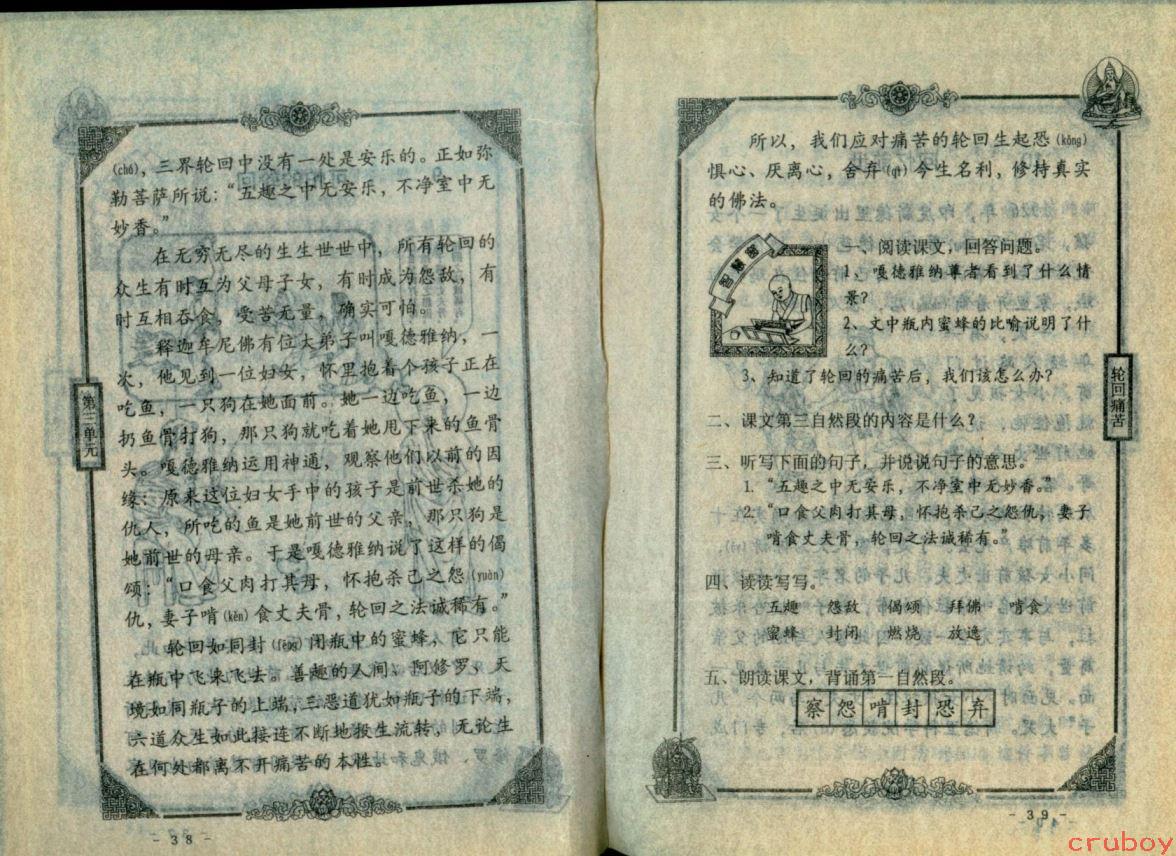 (chú)，三界轮回中没有一处是安乐的。正如弥
勒菩萨所说：“五趣之中无安乐，不净室中无
妙香。”
在无穷无尽的生生世世中，所有轮回的
众生有时互为父母子女，有时成为怨敌，有
时互相吞食，受苦无量，确实可怕。
释迦牟尼佛有位大弟子叫嘎德雅纳，一
次，他见到一位妇女，怀里抱着个孩子正在
吃鱼，一只狗在她面前。她一边吃鱼，一边
扔鱼骨打狗，那只狗就吃着她甩下来的鱼骨
头。嘎德雅纳运用神通，观察他们以前的因
缘：原来这位妇女手中的孩子是前世杀她的
仇人，所吃的鱼是她前世的父亲，那只狗是
她前世的母亲。于是嘎德雅纳说了这样的偈
颂：“口食父肉打其母，怀抱杀己之怨(yuàn)
仇，妻子啃(kěn)食丈夫骨，轮回之法诚稀有。”
轮回如同封(fēng)闭瓶中的蜜蜂，它只能
在瓶中飞来飞去。善趣的人间、阿修罗、天
境如同瓶子的上端，三恶道犹如瓶子的下端，
六道众生如此接连不断地投生流转，无论生
在何处都离不开痛苦的本性。
第三单元
- 38 -
所以，我们应对痛苦的轮回生起恐(kǒng)
惧心、厌离心，舍弃(qì)今生名利，修持真实
的佛法。
智慧窗
一、阅读课文，回答问题。
1、嘎德雅纳尊者看到了什么情
景？
2、文中瓶内蜜蜂的比喻说明了什
么？
3、知道了轮回的痛苦后，我们该怎么办？
二、课文第三自然段的内容是什么？
三、听写下面的句子，并说说句子的意思。
1.“五趣之中无安乐，不净室中无妙香。”
2.“口食父肉打其母，怀抱杀己之怨仇，妻子
啃食丈夫骨，轮回之法诚稀有。”
四、读读写写。
五趣 怨敌 偈颂 拜佛 啃食
蜜蜂 封闭 燃烧 放逸
五、朗读课文，背诵第一自然段。
察怨啃封恐弃
轮回痛苦
- 39 -
cruboy